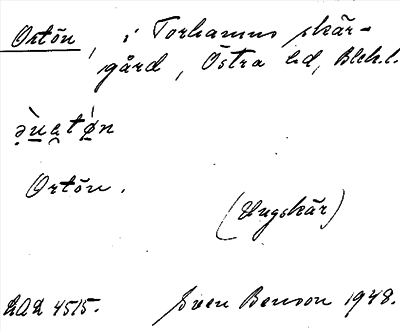 Ortön, i Torhamns skär-
gård, Östra hd, Blek.l.
Ortön.
(Ungskär)
LAL 4515. Sven Benson 1948.